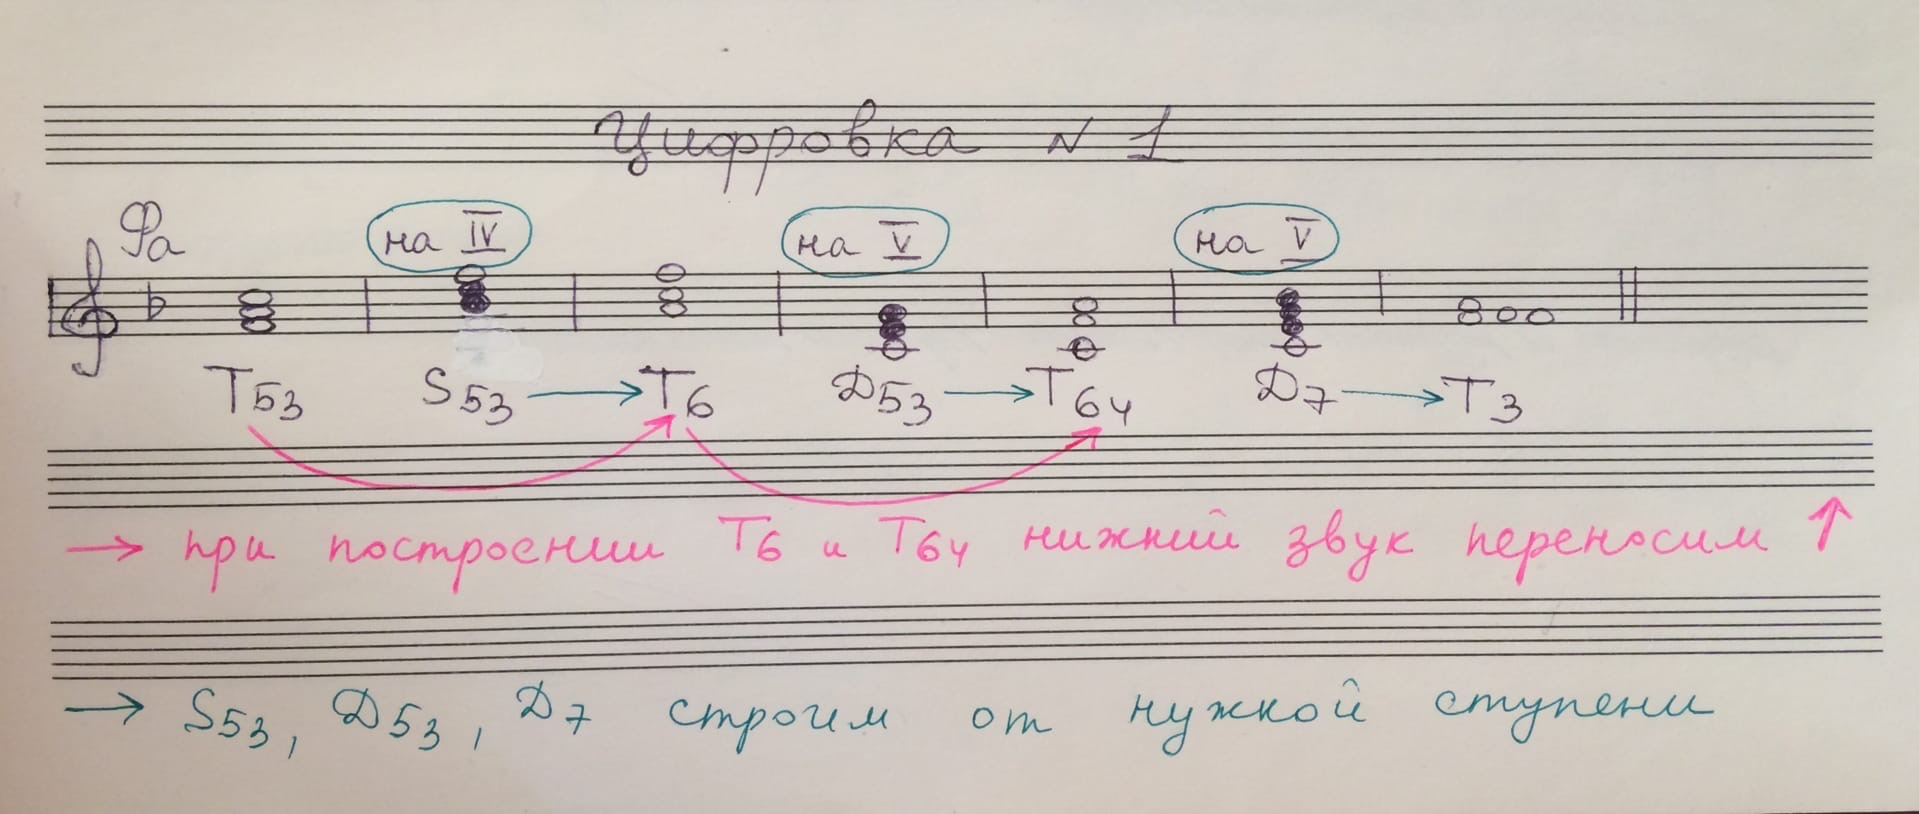 Цифровка N 1
Фа на IV на V на V
T53 S53 → T6 D53 → T64 D7 → T3
→ при построении T6 и T64 нижний звук переносим ↑
→ S53, D53, D7 строим от нужной ступени